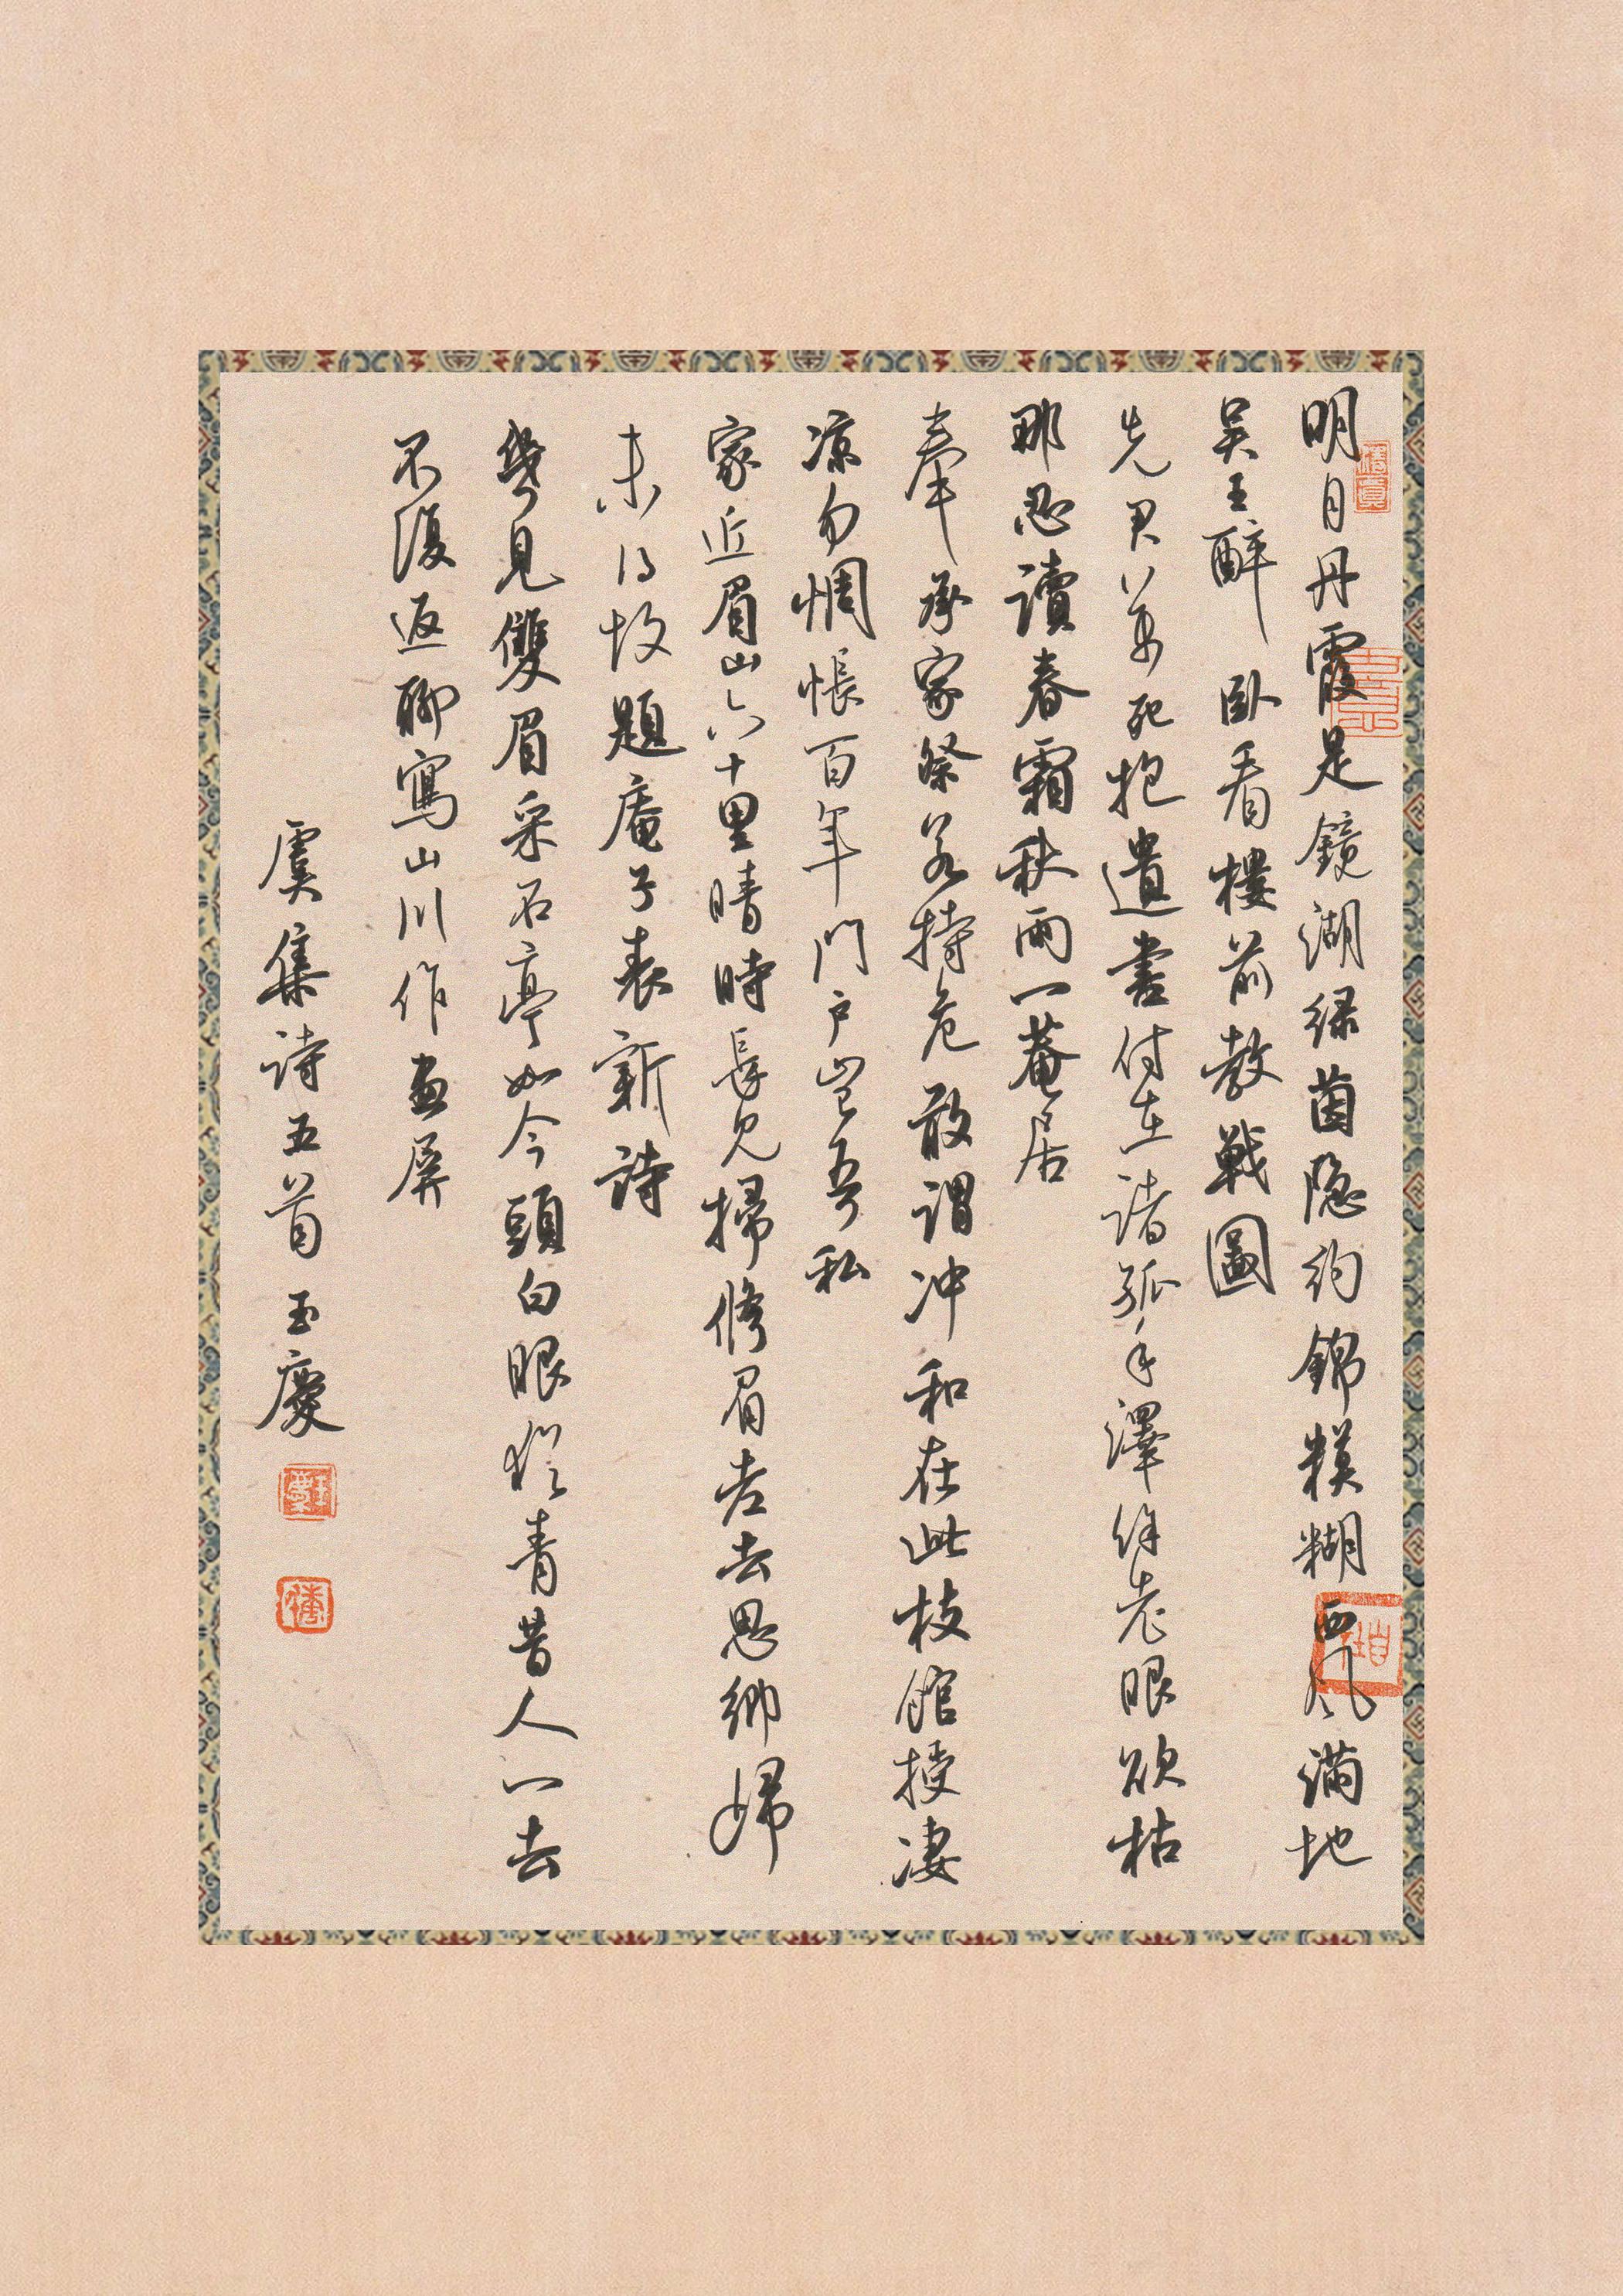 明月丹霞是鏡湖绿茵隐约錦糢糊西风满地
吴王醉卧看樓前教戰圖
先君萬死抱遺書付在諸孤手澤餘老眼欲枯
那忍讀春霜秋雨一菴居
奉承家祭若持危敢謂冲和在此枝館授凄
凉勿惆悵百年門户豈吾私
家近眉山六十里晴時長見掃修眉老去思鄉歸
未得故題庵子表新詩
幾見雙眉采石亭如今頭白眼猶青昔人一去
不復返聊寫山川作畫屏
虞集詩五首 玉慶